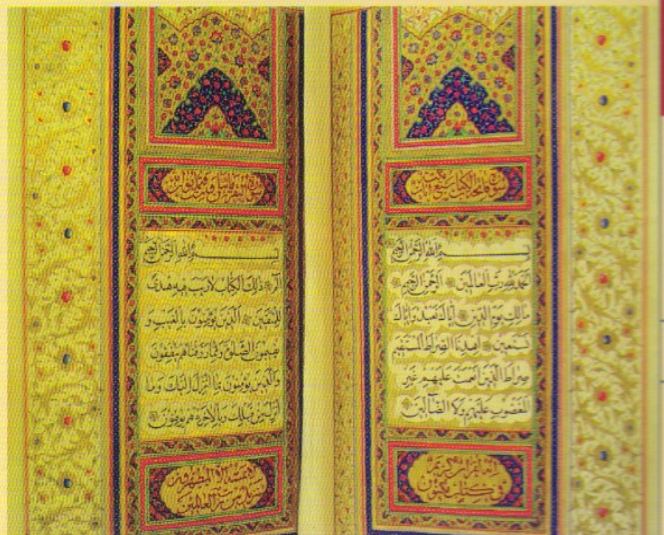 سورة فاتحة الكتاب سبع آيات
بسم الله الرحمن الرحيم
الحمد لله رب العالمين الرحمن الرحيم
مالك يوم الدين اياك نعبد واياك
نستعين اهدنا الصراط المستقيم
صراط الذين انعمت عليهم غير
المغضوب عليهم ولا الضالين
انه لقرآن كريم
في كتاب مكنون
بسم الله الرحمن الرحيم
الم ذلك الكتاب لا ريب فيه هدى
للمتقين الذين يؤمنون بالغيب و
يقيمون الصلوة ومما رزقناهم ينفقون
والذين يؤمنون بما انزل اليك وما
انزل من قبلك وبالاخرة هم يوقنون
لا يمسه الا المطهرون
تنزيل من رب العالمين